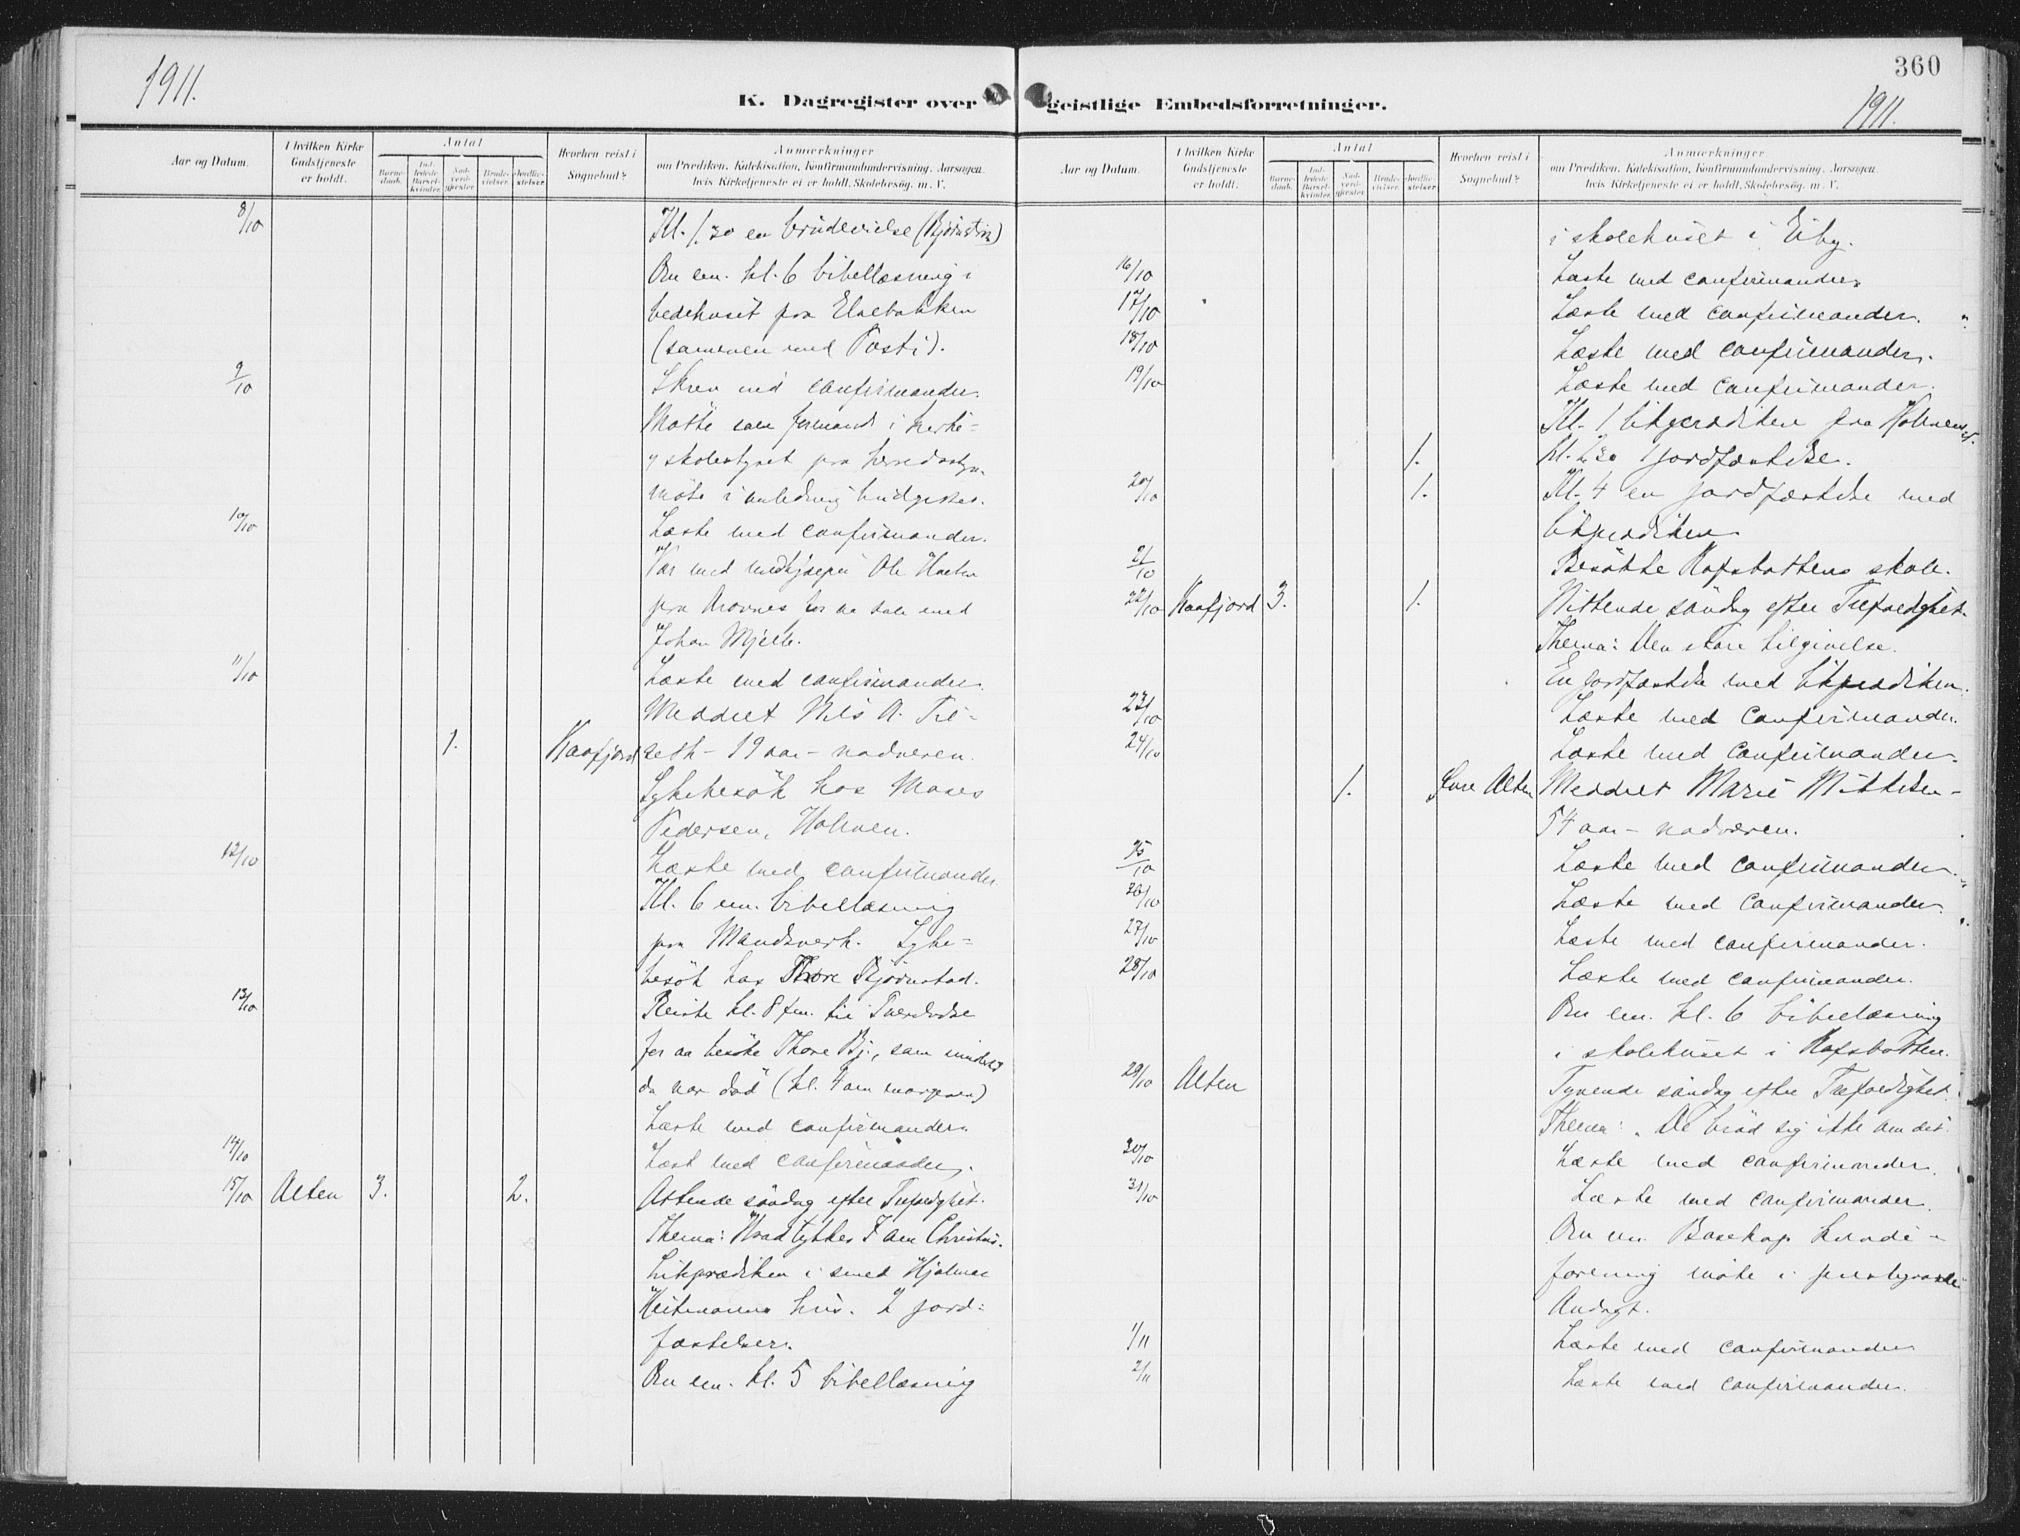 360
1911.
1911.
K. Dagregister over geistlige Embedsforretninger.
Aar og Datum.
I hvilken Kirke Gudstjeneste er holdt.
Antal
Barnedaab.
Indledede Barselkvinder.
Nadverdgjester.
Brudevielser.
Jordfæstelser.
Hvorhen reist i Sognebud?
Anmærkninger
om Prædiken, Katekisation, Konfirmandundervisning, Aarsagen,
hvis Kirketjeneste ei er holdt, Skolebesøg, m. V.
8/10 Kl. 1.30 en brudevielse
em. kl. 6 bibellæsning i
bedehuset paa Elvebakken
(sammen med Posti).
9/10 Skrev ind confirmander.
Møtte som formand i kirke-
og skolestyret paa herredssty-
møte i anledning budgettet.
10/10 Læste med confirmander.
Var med Ole
paa Aronnes for aa tale med
Johan
11/10 Læste med confirmander.
Meddelt Nils A.
1. Kaafjord seth - 19 aar - nadveren.
Sykebesök hos Moses
Pedersen, Holmen.
12/10 Læste med confirmander
Kl. 6 em. bibellæsning
paa Mandsverk. Syke-
besök hos Thore Bjørnstad.
13/10 Reiste kl. 8 fm. til Tverelvdal
for aa besöke Thore Bj., som
da var död (kl. 4 om morgenen)
Læste med confirmander.
14/10 Læst med confirmander.
15/10 Alten 3. 2. Attende söndag efter Trefoldighet.
Thema: Hvad tykkes I om Christus.
Likprædiken i smed Hjalmar
Heitmanns hus. 2 jord-
fæstelser.
em. kl. 5 bibellæsning
Aar og Datum.
I hvilken Kirke Gudstjeneste er holdt.
Antal
Barnedaab.
Indledede Barselkvinder.
Nadverdgjester.
Brudevielser.
Jordfæstelser.
Hvorhen reist i Sognebud?
Anmærkninger
om Prædiken, Katekisation, Konfirmandundervisning, Aarsagen,
hvis Kirketjeneste ei er holdt, Skolebesøg, m. V.
i skolehuset i Eiby.
16/10 Læste med confirmander
17/10 Læste med confirmander.
18/10 Læste med confirmander.
19/10 Læste med confirmander.
Kl. 1 likprædiken paa
1. kl. 2.30 1 jordfæstelse.
20/10 1. Kl. 4 en jordfæstelse med
likprædiken
21/10 Besökte Rafsbottens skole.
22/10 Kaafjord 3. 1. Nittende söndag efter Trefoldighet.
Thema: Den store tilgivelse.
En jordfæstelse med likprædiken.
23/10 Læste med confirmander.
24/10 Læste med confirmander.
1. Övre Alten Meddelt Marie Mikkelsen -
54 aar - nadveren.
25/10 Læste med confirmander.
26/10 Læste med confirmander.
27/10 Læste med confirmander.
28/10 Læste med confirmander.
em. kl. 6 bibellæsning
i skolehuset i Rafsbotten.
29/10 Alten Tyvende söndag efter Trefoldighet.
Thema: "De bröd sig ikke om det".
30/10 Læste med confirmander.
31/10 Læste med confirmander.
em. Bosekop kvinde-
forening möte i prestegaarden
Andagt.
1/11 Læste med confirmander
2/11 Læste med confirmander.